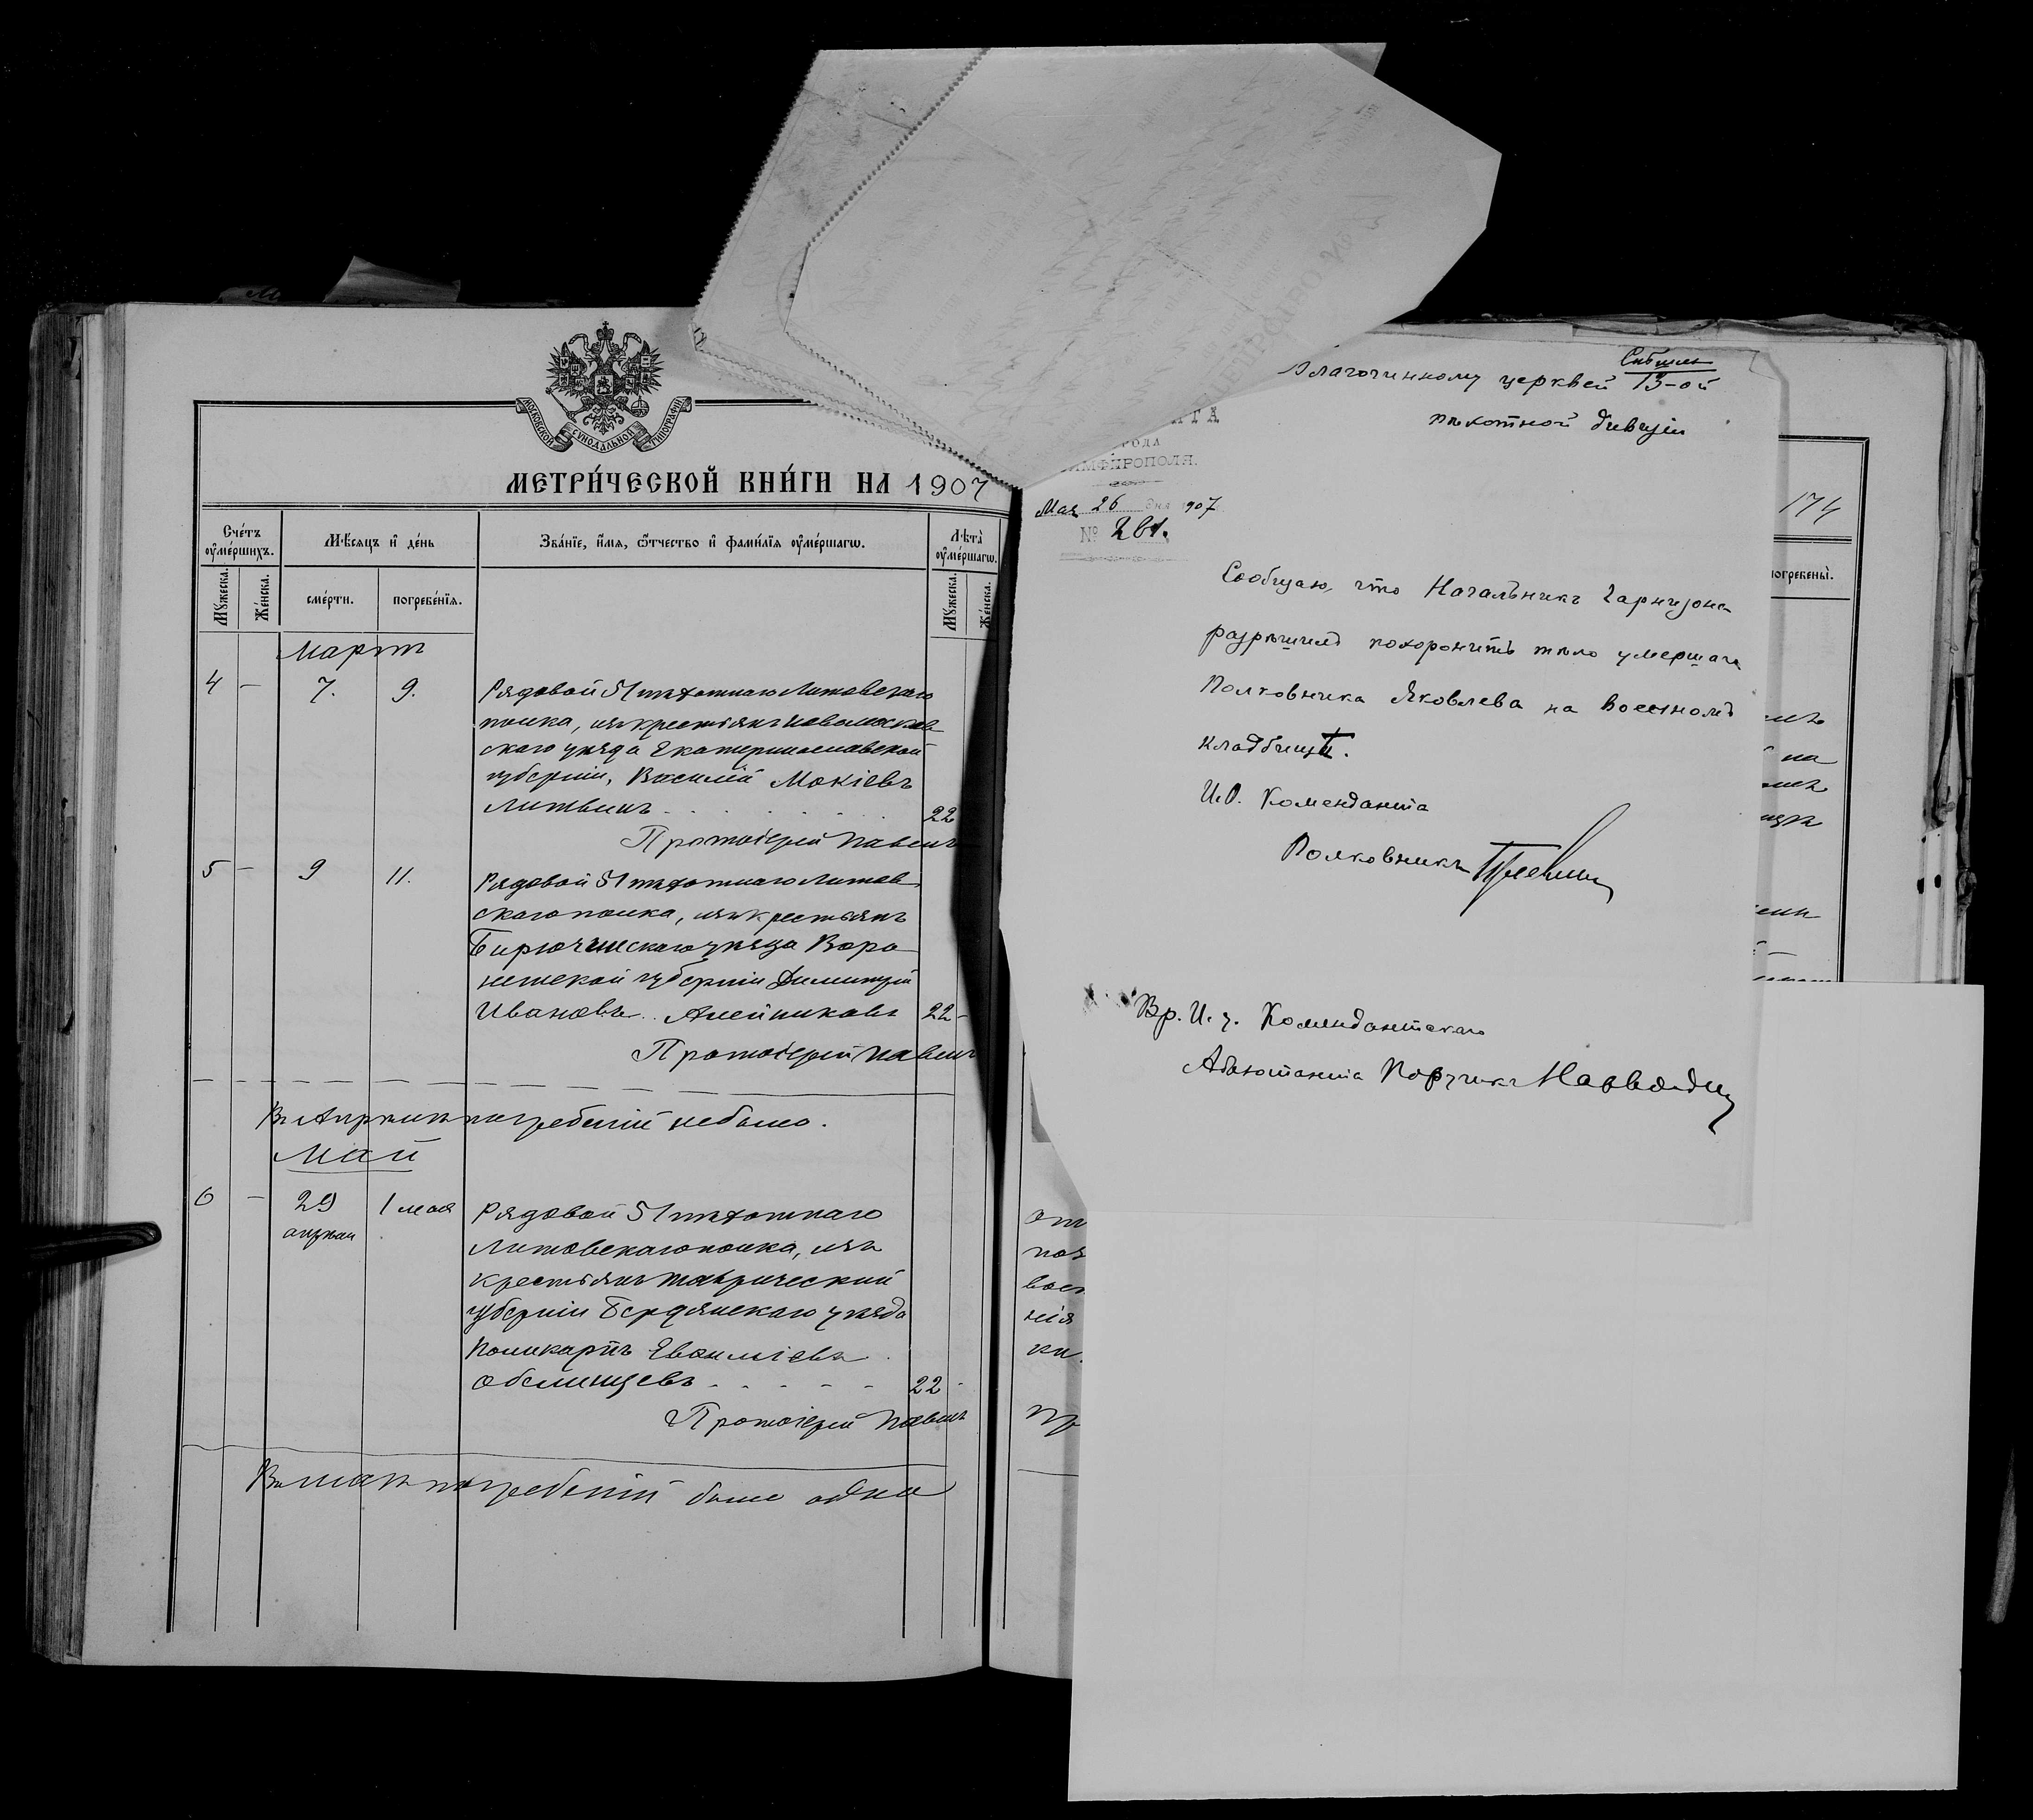 МОСКОВСКОЙ СѴНОДАЛЬНОЙ ТИПОГРАФІИ
МЕТРИ́ЧЕСКОЙ КНИ́ГИ НА 1907
Сче́тъ ᲂу҆ме́ршихъ.
Мꙋжеска.
Же́нска.
Мѣ́сяцъ и҆ де́нь
сме́рти.
погребе́нїя.
Зва́нїе, и҆́мя, ѻ҆́тчество и҆ фами́лїя ᲂу҆ме́ршагѡ.
Лѣ́та ᲂу҆ме́ршагѡ.
Мꙋжеска.
Же́нска.
Мартъ
4 — 7. 9. Рядовой 51 пѣхотнаго Литовскаго
полка, изъ крестьянъ Новомосков
скаго уѣзда Екатеринославской
губерніи, Василій Мокіевъ
Литвинъ . . . . . . 22
Протоіерей Павелъ
5 — 9 11. Рядовой 51 пѣхотнаго Литов
скаго полка, изъ крестьянъ
Бирюченскаго уѣзда Воро
нежской губерніи Димитрій
Ивановъ Алейниковъ 22 -
Протоіерей Павелъ
Въ Апрѣлѣ погребеній не было.
Май
6 — 29 апрѣля 1 мая Рядовой 51 пѣхотнаго
Литовскаго полка, изъ
крестьянъ Таврической
губерніи Бердянскаго уѣзда
Поликарпъ
22 -
Протоіерей Павелъ
Въ маѣ погребеній было одно
174
погребены̀.
Благочинному церквей 13-ой
пѣхотной дивизіи
ГОРОДА
СИМФЕРОПОЛЯ.
Мая 26 дня 1907
№ 261.
Сообщаю, что Начальникъ Гарнизона
разрѣшилъ похоронить тѣло умершаго
Полковника Яковлева на Военномъ
кладбищѣ.
И.О. Коменданта
Полковникъ
Вр. И. д. Комендантскаго
Адъютанта Поручикъ